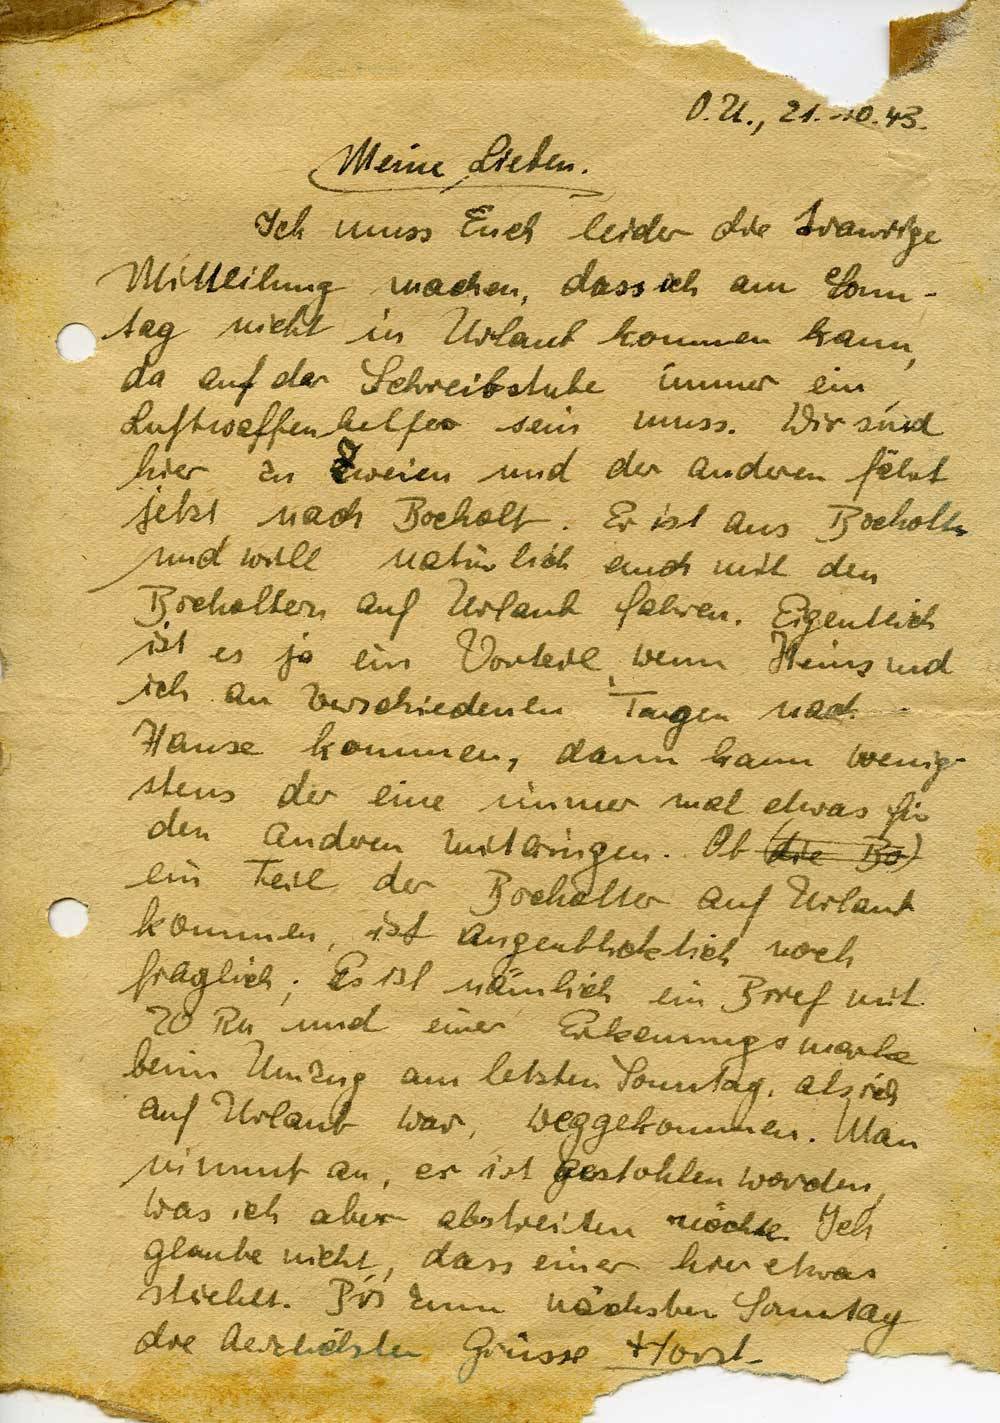 O.U., 21.10.43.
Meine Lieben.
Ich muss Euch leider die traurige
Mitteilung machen, dass ich am Sonn-
tag nicht in Urlaub kommen kann,
da auf der Schreibstube immer ein
Luftwaffenhelfer sein muss. Wir sind
hier zu Zweien und der anderen fährt
jetzt nach Bocholt. Er ist aus Bocholt
und will natürlich auch mit den
Bocholtern auf Urlaub fahren. Eigentlich
ist es ja ein Vorteil, wenn Heinz und
ich an verschiedenen Tagen nach
Hause kommen, dann kann wenig-
stens der eine immer mal etwas für
den anderen mitbringen. Ob (die Bo)
ein Teil der Bocholter auf Urlaub
kommen, ist augenblicklich noch
fraglich; Es ist nämlich ein Brief mit
20 RM und einer Erkennungsmarke
beim Umzug am letzten Sonntag, als ich
auf Urlaub war, weggekommen. Man
nimmt an, er ist gestohlen worden,
was ich aber abstreiten möchte. Ich
glaube nicht, dass einer hier etwas
stiehlt. Bis zum nächsten Sonntag
die herzlichsten Grüsse Horst